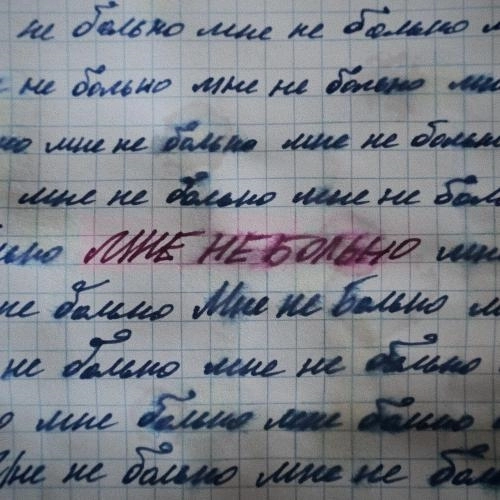 не больно мне не больно м
не больно мне не больно мн
но мне не больно мне не больн
мне не больно мне не боль
льно МНЕ НЕ БОЛЬНО мн
не больно Мне не больно м
не больно мне не больно
о мне больно мне больно
Мне не больно мне не бол